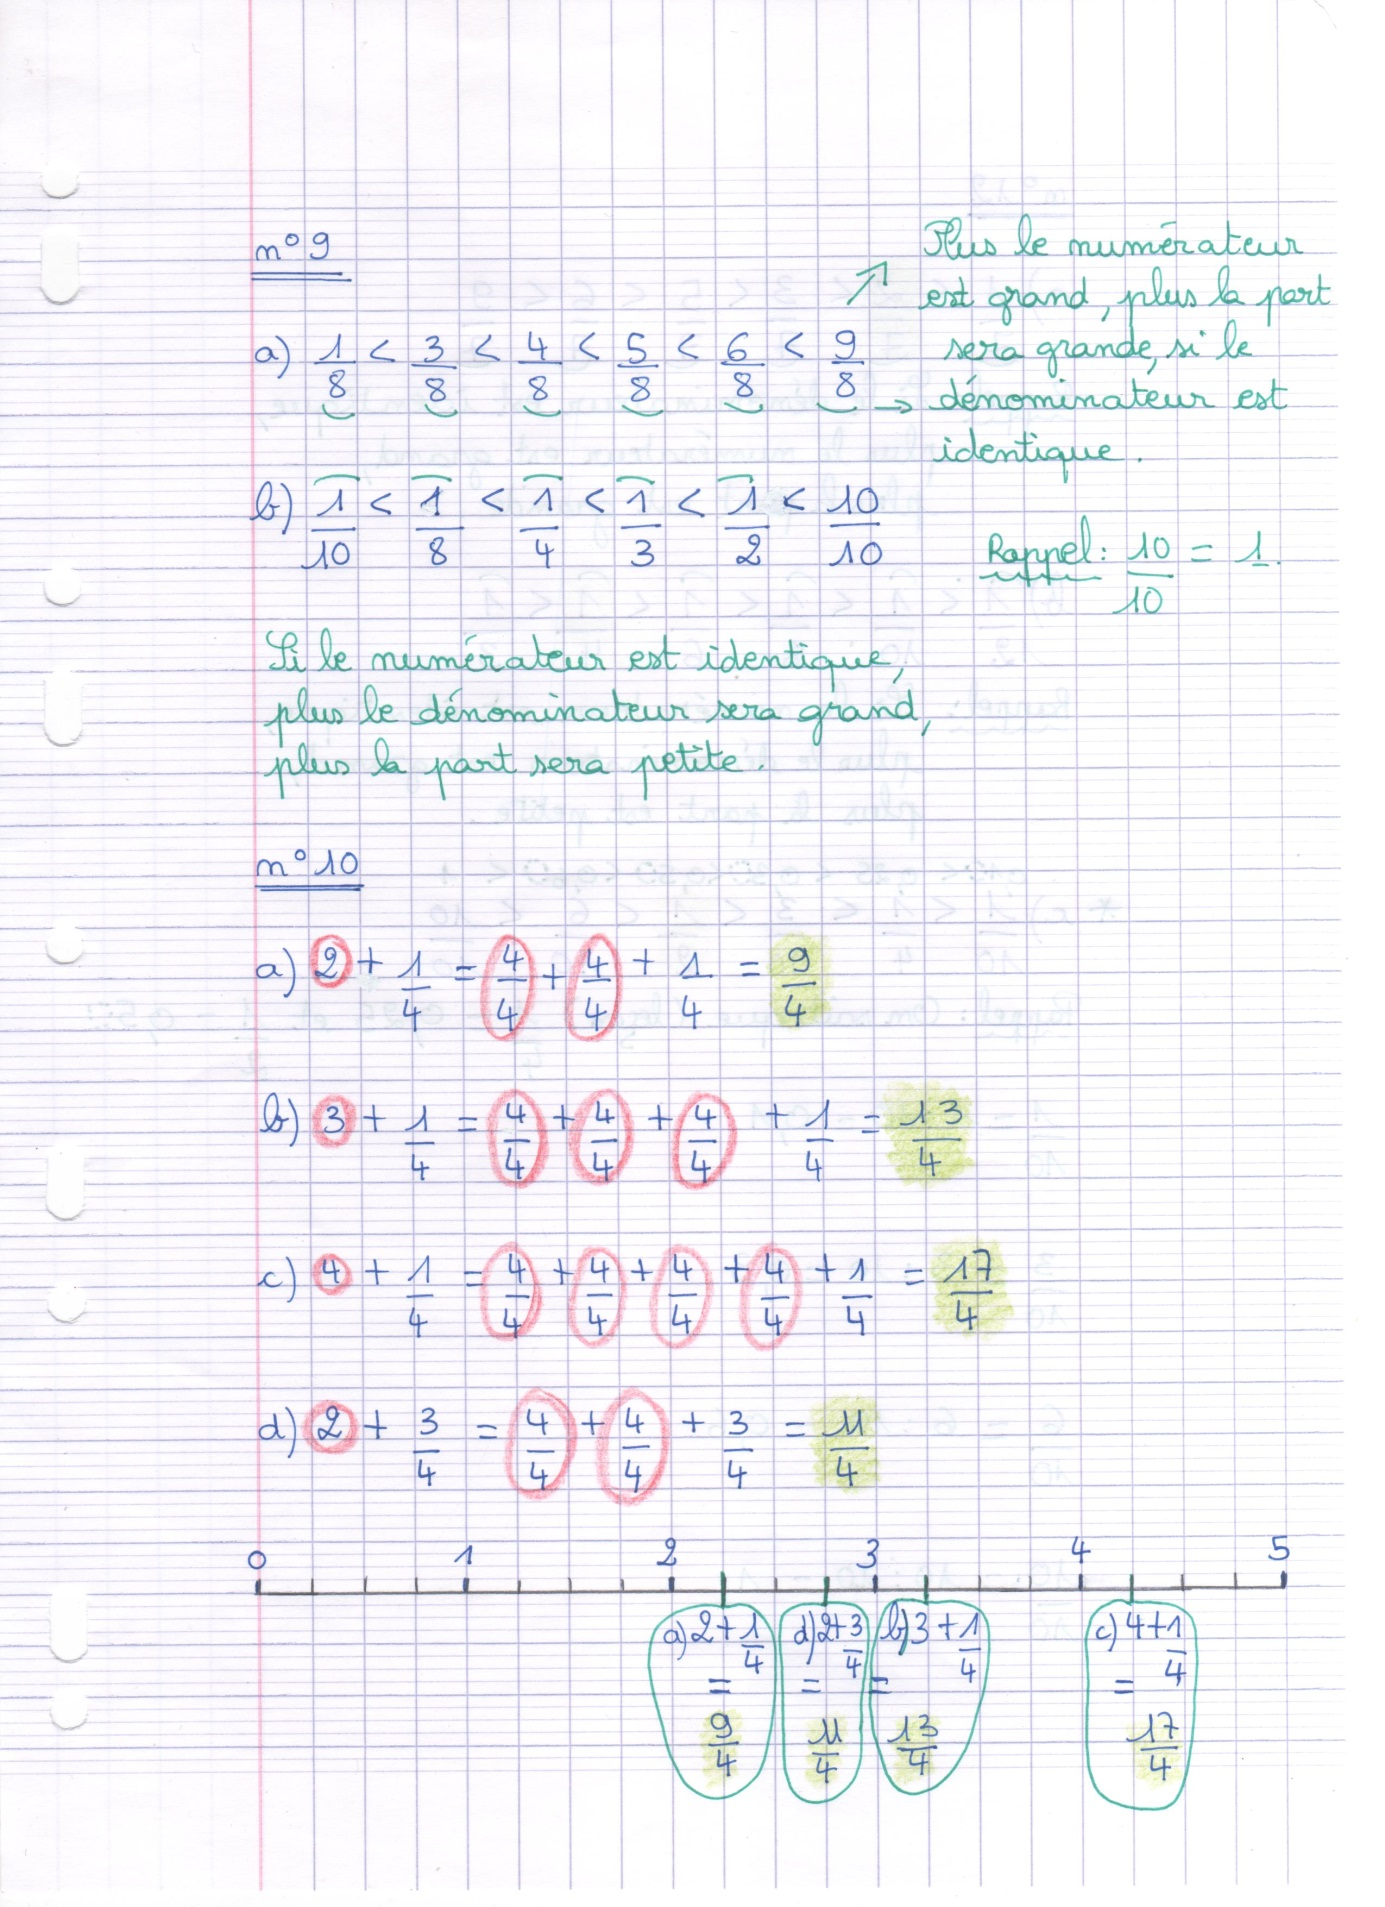 n° 9
Plus le numérateur
est grand, plus la part
sera grande, si le
dénominateur est
identique.
a) 1/8 < 3/8 < 4/8 < 5/8 < 6/8 < 9/8
b) 1/10 < 1/8 < 1/4 < 1/3 < 1/2 < 10/10
Rappel : 10/10 = 1.
Si le numérateur est identique,
plus le dénominateur sera grand,
plus la part sera petite.
n° 10
a) 2 + 1/4 = 4/4 + 4/4 + 1/4 = 9/4
b) 3 + 1/4 = 4/4 + 4/4 + 4/4 + 1/4 = 13/4
c) 4 + 1/4 = 4/4 + 4/4 + 4/4 + 4/4 + 1/4 = 17/4
d) 2 + 3/4 = 4/4 + 4/4 + 3/4 = 11/4
0 1 2 3 4 5
a) 2 + 1/4 = 9/4
d) 2 + 3/4 = 11/4
b) 3 + 1/4 = 13/4
c) 4 + 1/4 = 17/4